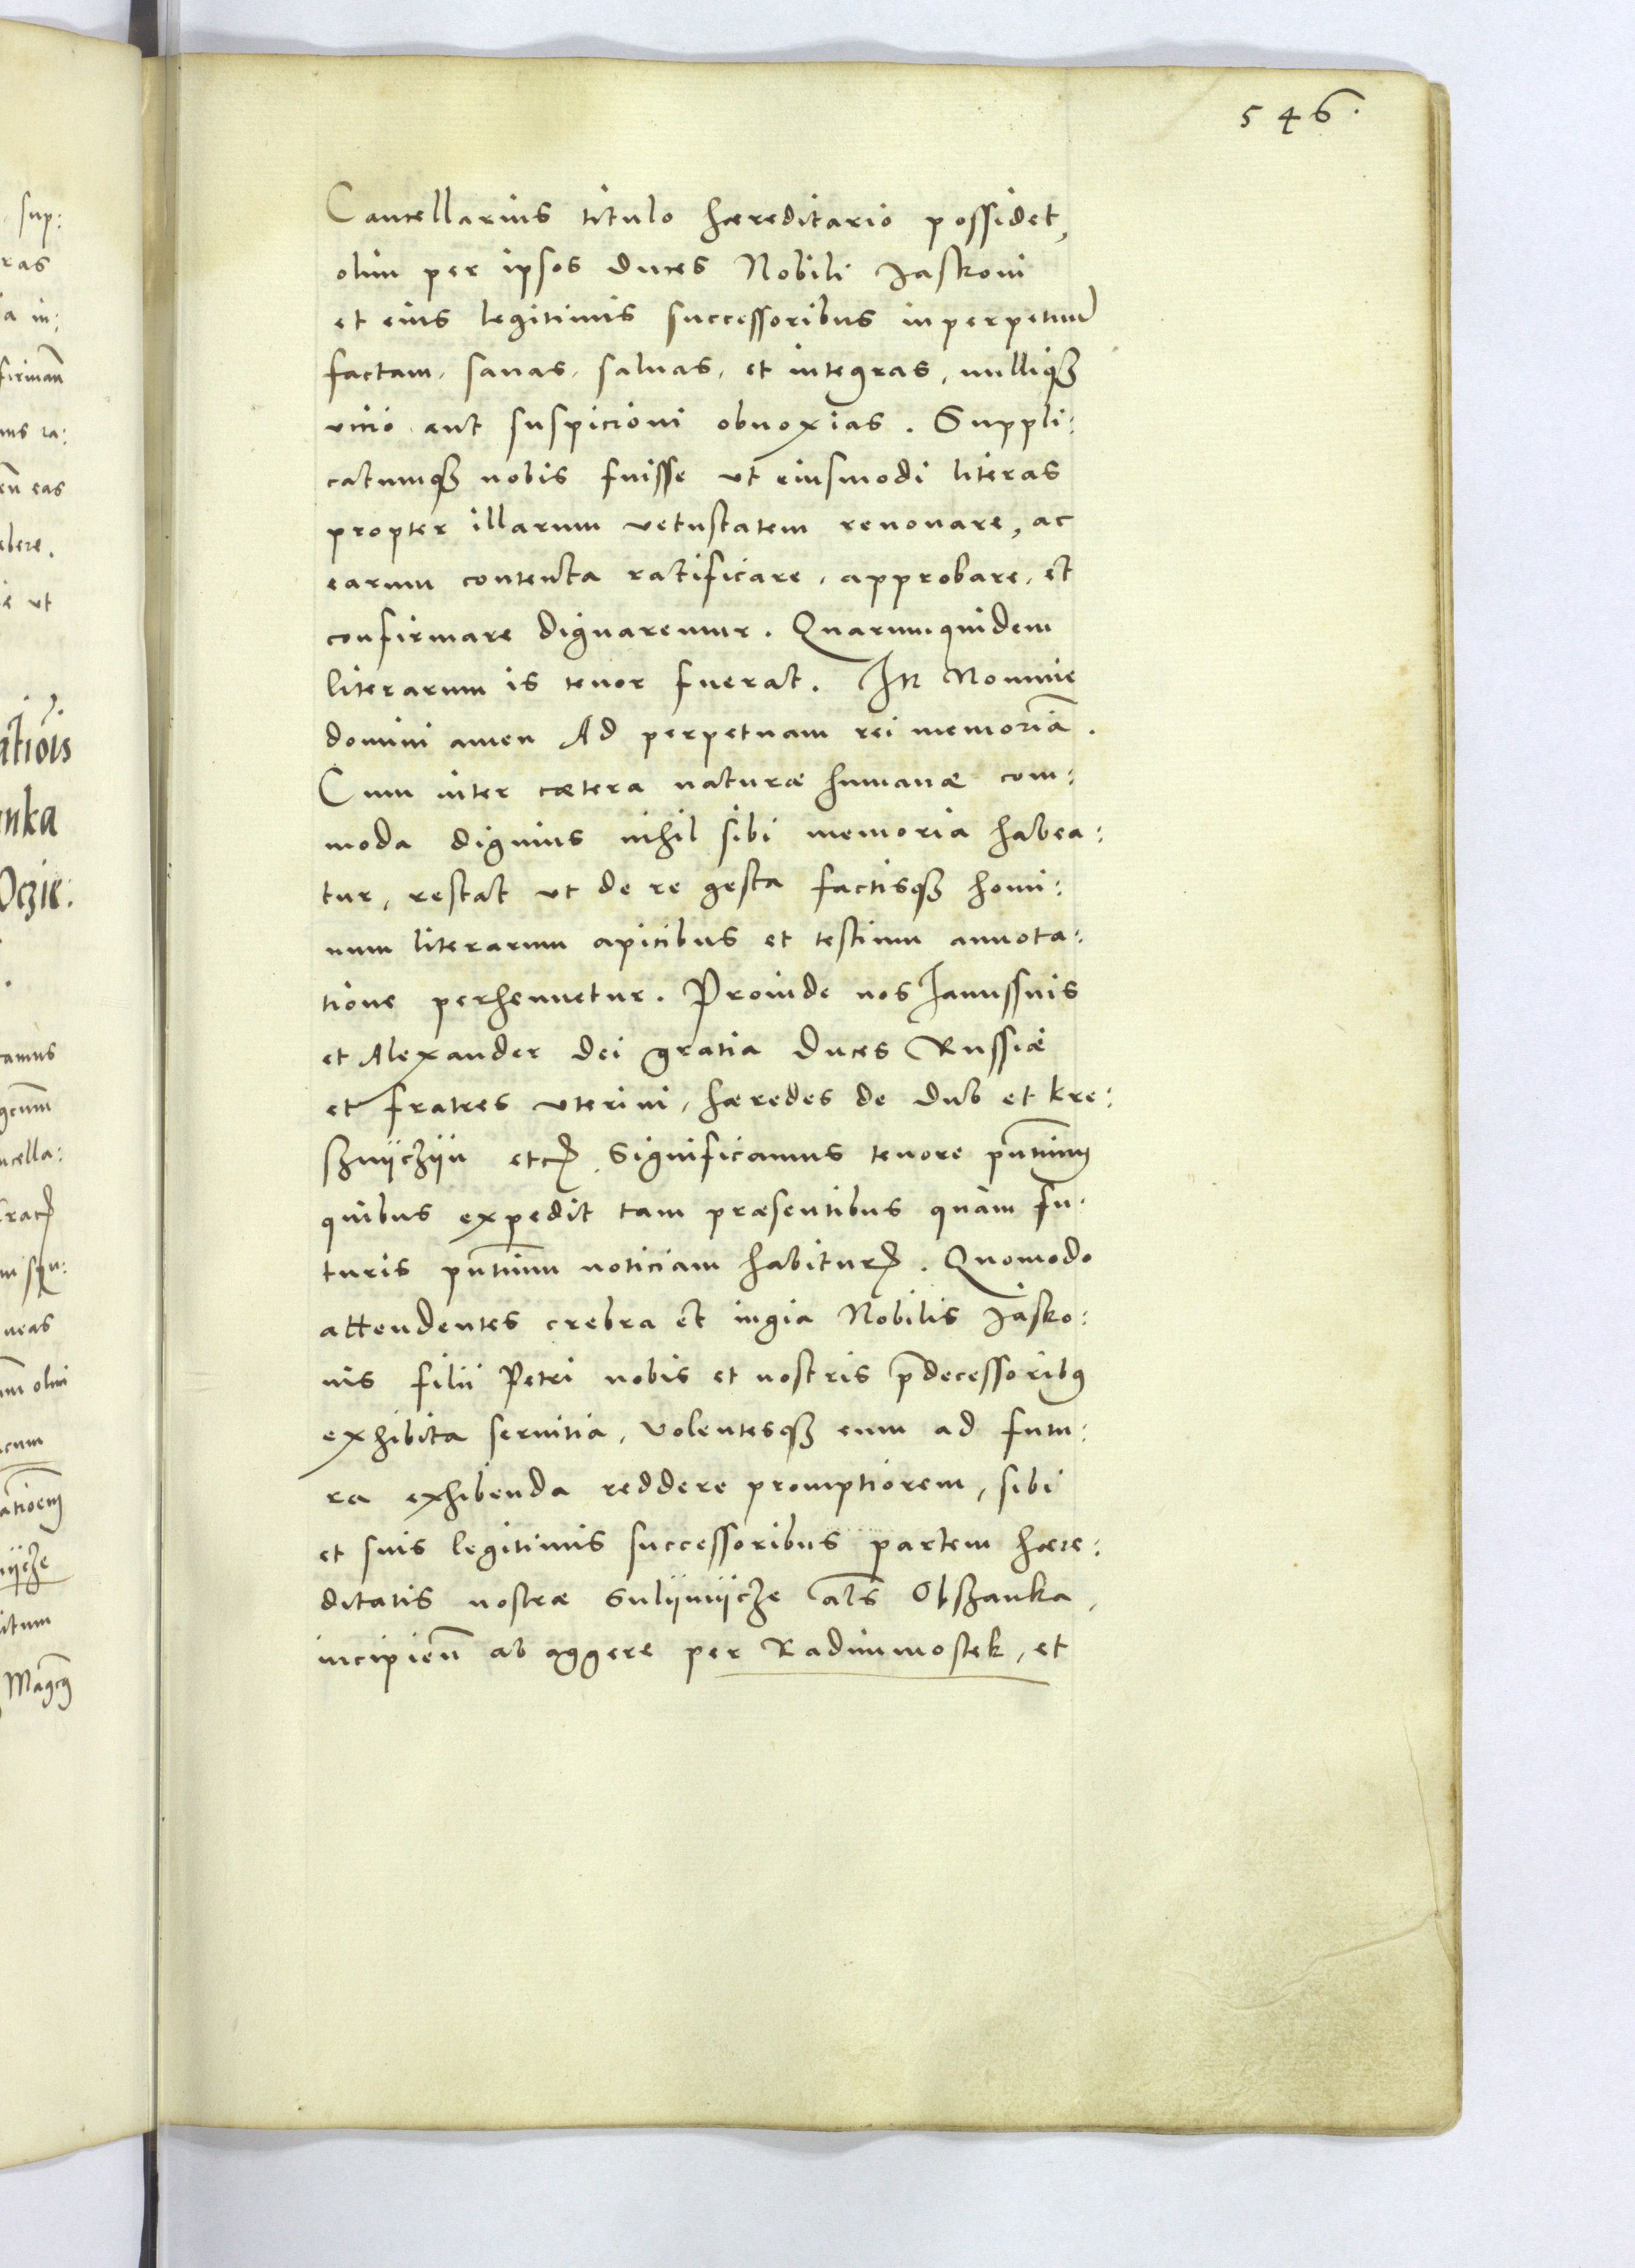 546.
Cancellarius titulo hæreditario possidet,
olim per ipsos duces Nobili Jaskoni
et eius legitimis successoribus in perpetuum
factam, sanas, saluas, et integras, nulliqȝ
vitio aut suspicioni obnoxias. Suppli:
catumqȝ nobis fuisse vt eiusmodi literas
propter illarum vetustatem renouare, ac
earum contenta ratificare, approbare, et
confirmare dignaremur. Quarumquidem
literarum is tenor fuerat. In Nomine
domini amen Ad perpetuam rei memoriā.
Cum inter cætera naturæ humanæ com:
moda dignius nihil sibi memoria habea:
tur, restat vt de re gesta factisqȝ homi:
num literarum apicibus et testium annota:
tione perhennetur. Proinde nos Janussuis
et Alexander dei gratia duces Russiæ
et fratres vterini, hæredes de dub et kre:
sznÿczÿn etc. Significamus tenore pn̄tium
quibus expedit tam præsentibus quàm fu:
turis pn̄tium noticiam habitur. Quomodo
attendentes crebra et ingia Nobilis Jasko:
nis filii Petri nobis et nostris p̄decessoribꝰ
exhibita seruitia, volentesqȝ eum ad futu:
ra exhibenda reddere promptiorem, sibi
et suis legitimis successoribus partem hære:
ditatis nostræ Sulÿmÿcze al̄s Olszanka,
incipien̄ ab aggere per Radimmostek, et